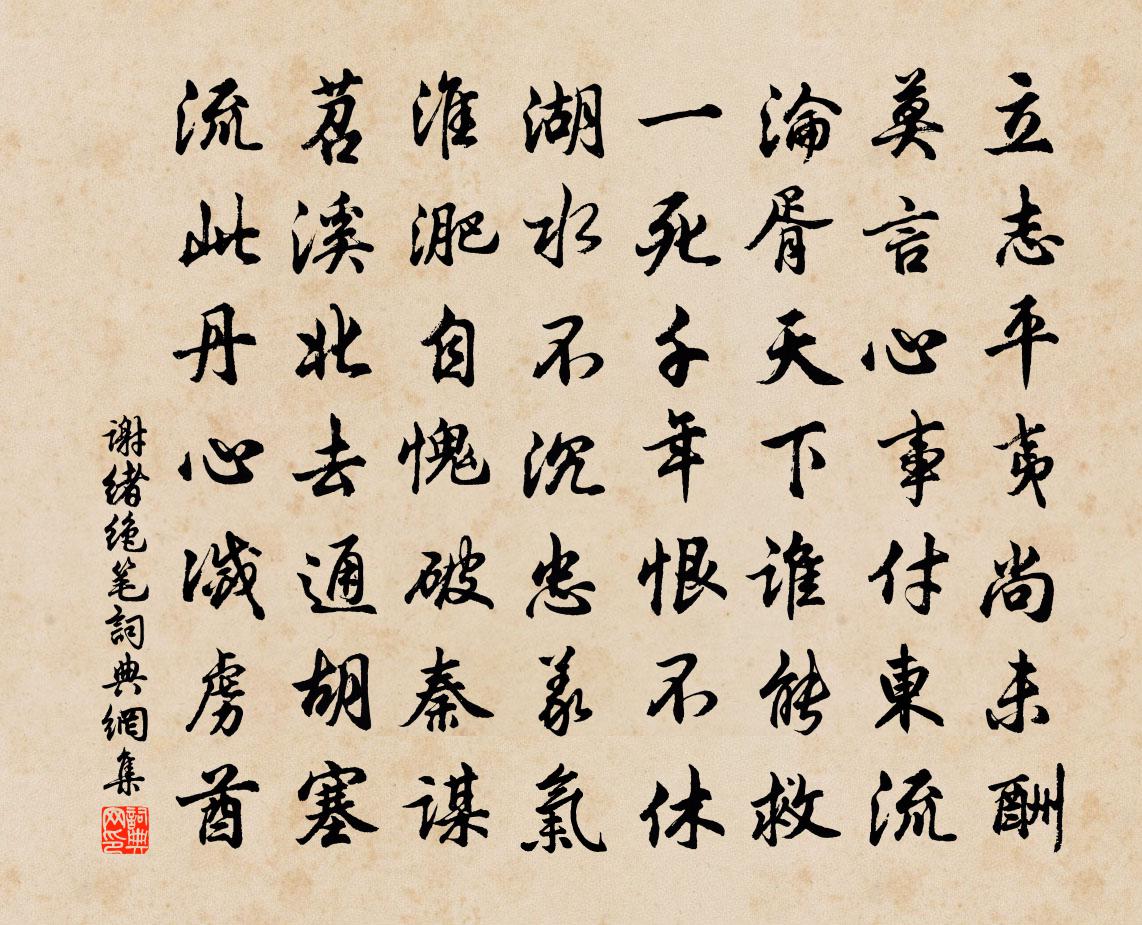 立志平夷尚未酬
莫言心事付東流
淪胥天下誰能救
一死千年恨不休
湖水不沉忠義氣
淮淝自愧破秦謀
苕溪北去通胡塞
流此丹心滅虜酋
謝緒絶笔詞典網集
詞典网印